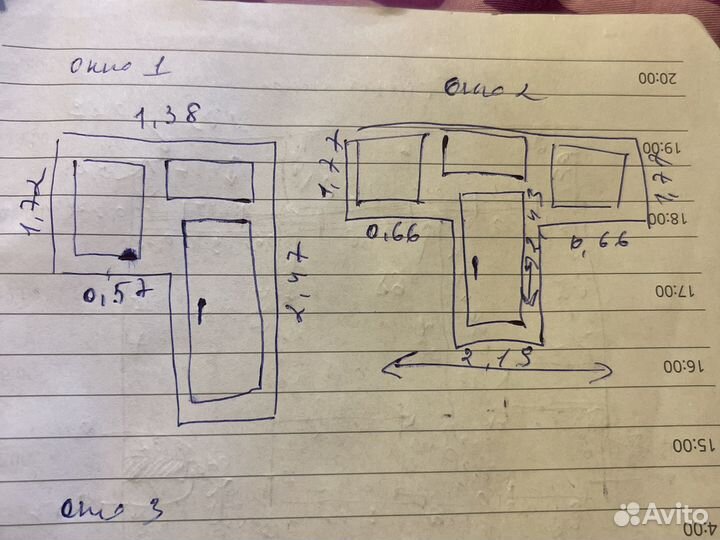 Окно 1
1,38
1,72
0,57
2,47
Окно 2
1,77
1,77
0,66
0,66
2,43
2,19
Окно 3
20:00
19:00
18:00
17:00
16:00
15:00
4:00
Avito